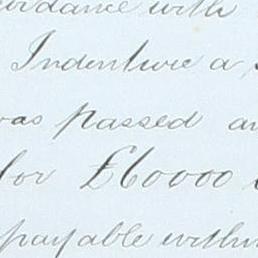 with
Indenture a
was passed
for £60000
payable within